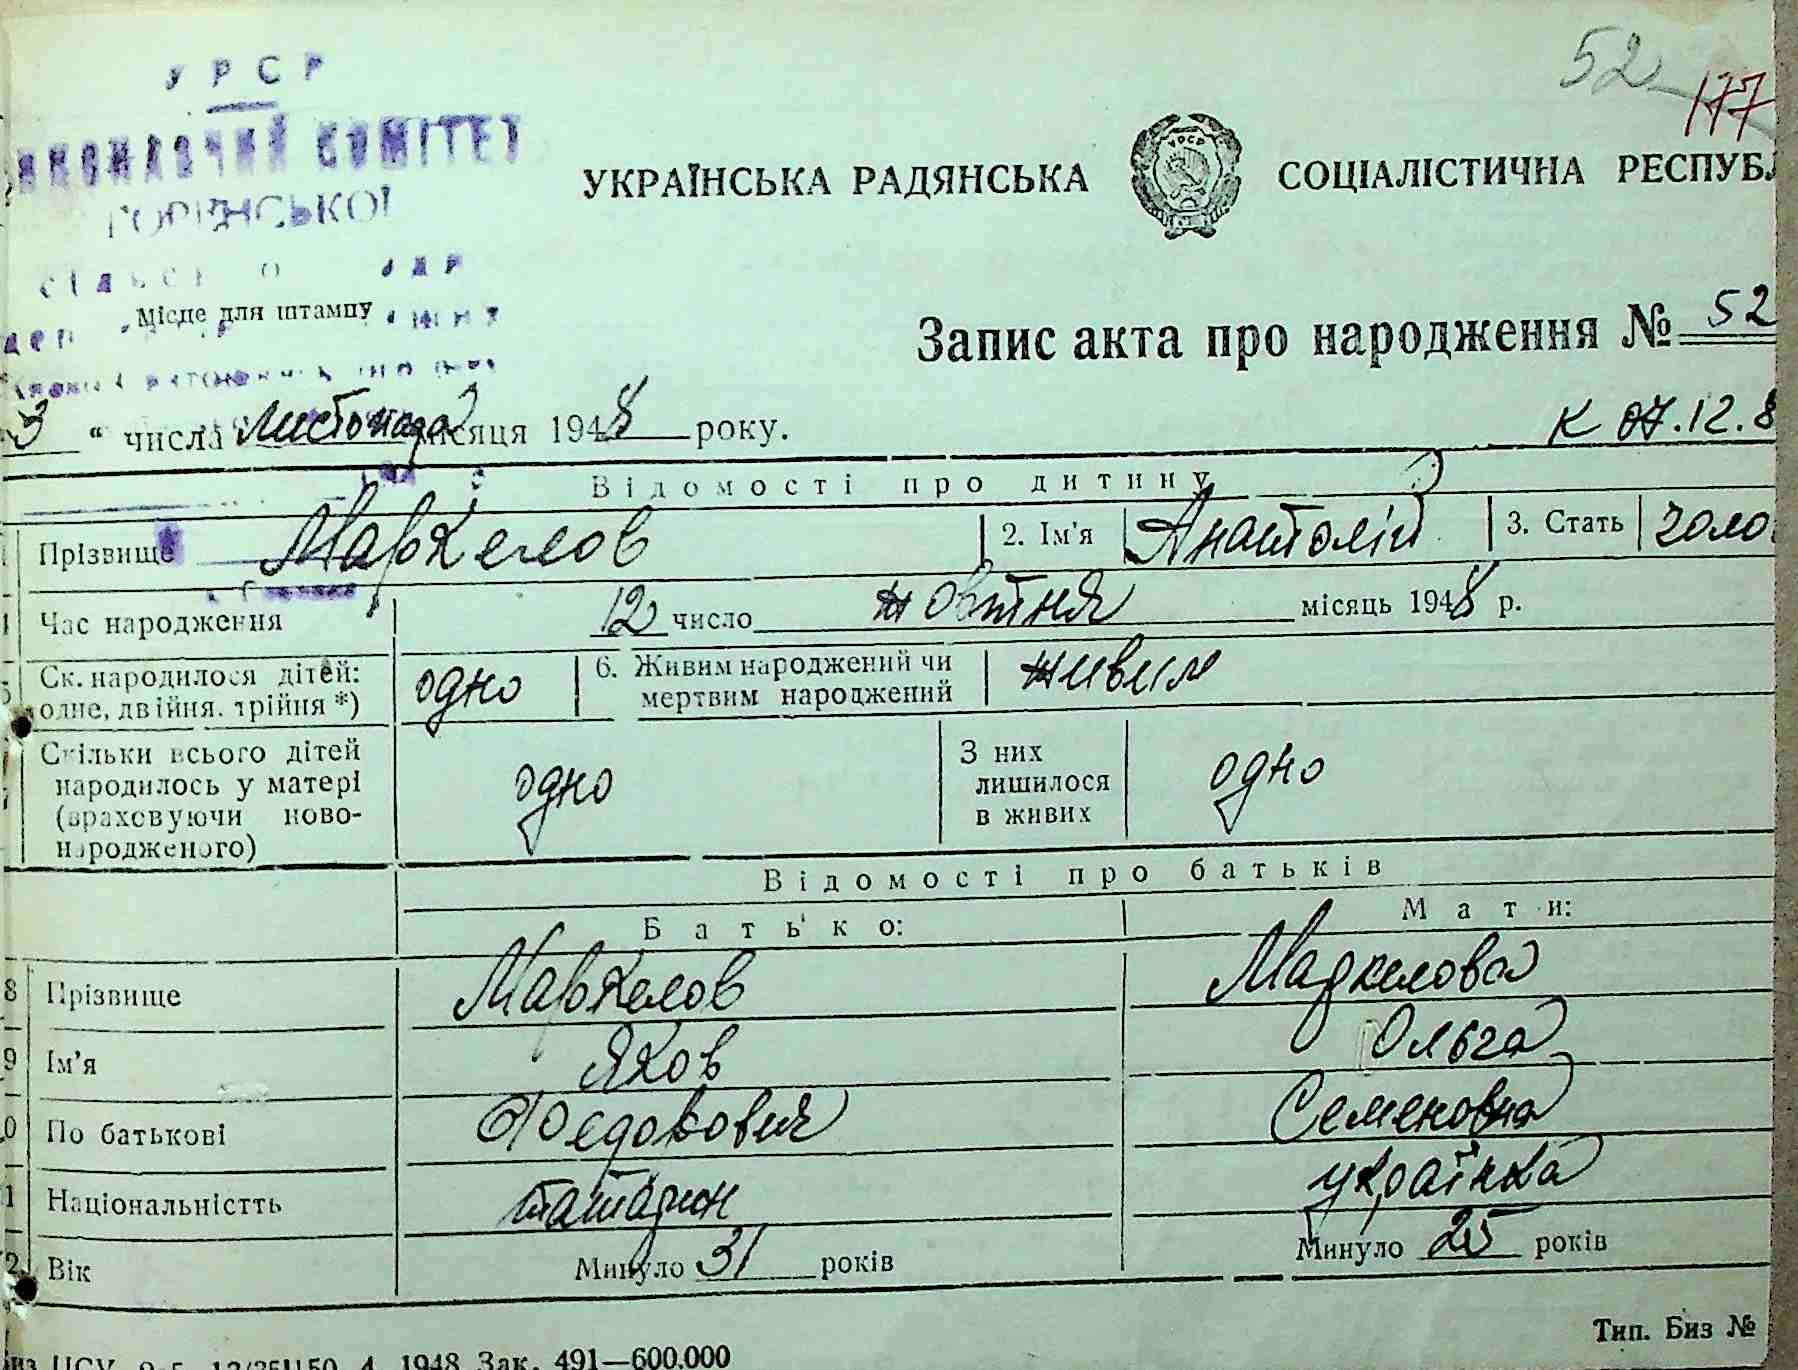 52
177
УРСР
КОМІТЕТ
УКРАЇНСЬКА РАДЯНСЬКА СОЦІАЛІСТИЧНА РЕСПУБЛ
УРСР
Місце для штампу
Запис акта про народження № 52
3 " числа Листопада місяця 1948 року.
К 07.12.8
Відомості про дитину
Прізвище Маркелов 2. Ім'я Анатолій 3. Стать чоло
Час народження 12 число жовтня місяць 1948 р.
Ск. народилося дітей: одне, двійня, трійня *) одно 6. Живим народжений чи мертвим народжений живим
Скільки всього дітей народилось у матері (враховуючи ново-народженого) одно З них лишилося в живих одно
Відомості про батьків
Батько: Мати:
8 Прізвище Маркелов Маркелова
9 Ім'я Яков Ольга
0 По батькові Федорович Семеновна
1 Національністть татарин українка
2 Вік Минуло 31 років Минуло 25 років
Тип. Биз №
4 1948 Зак. 491—600.000